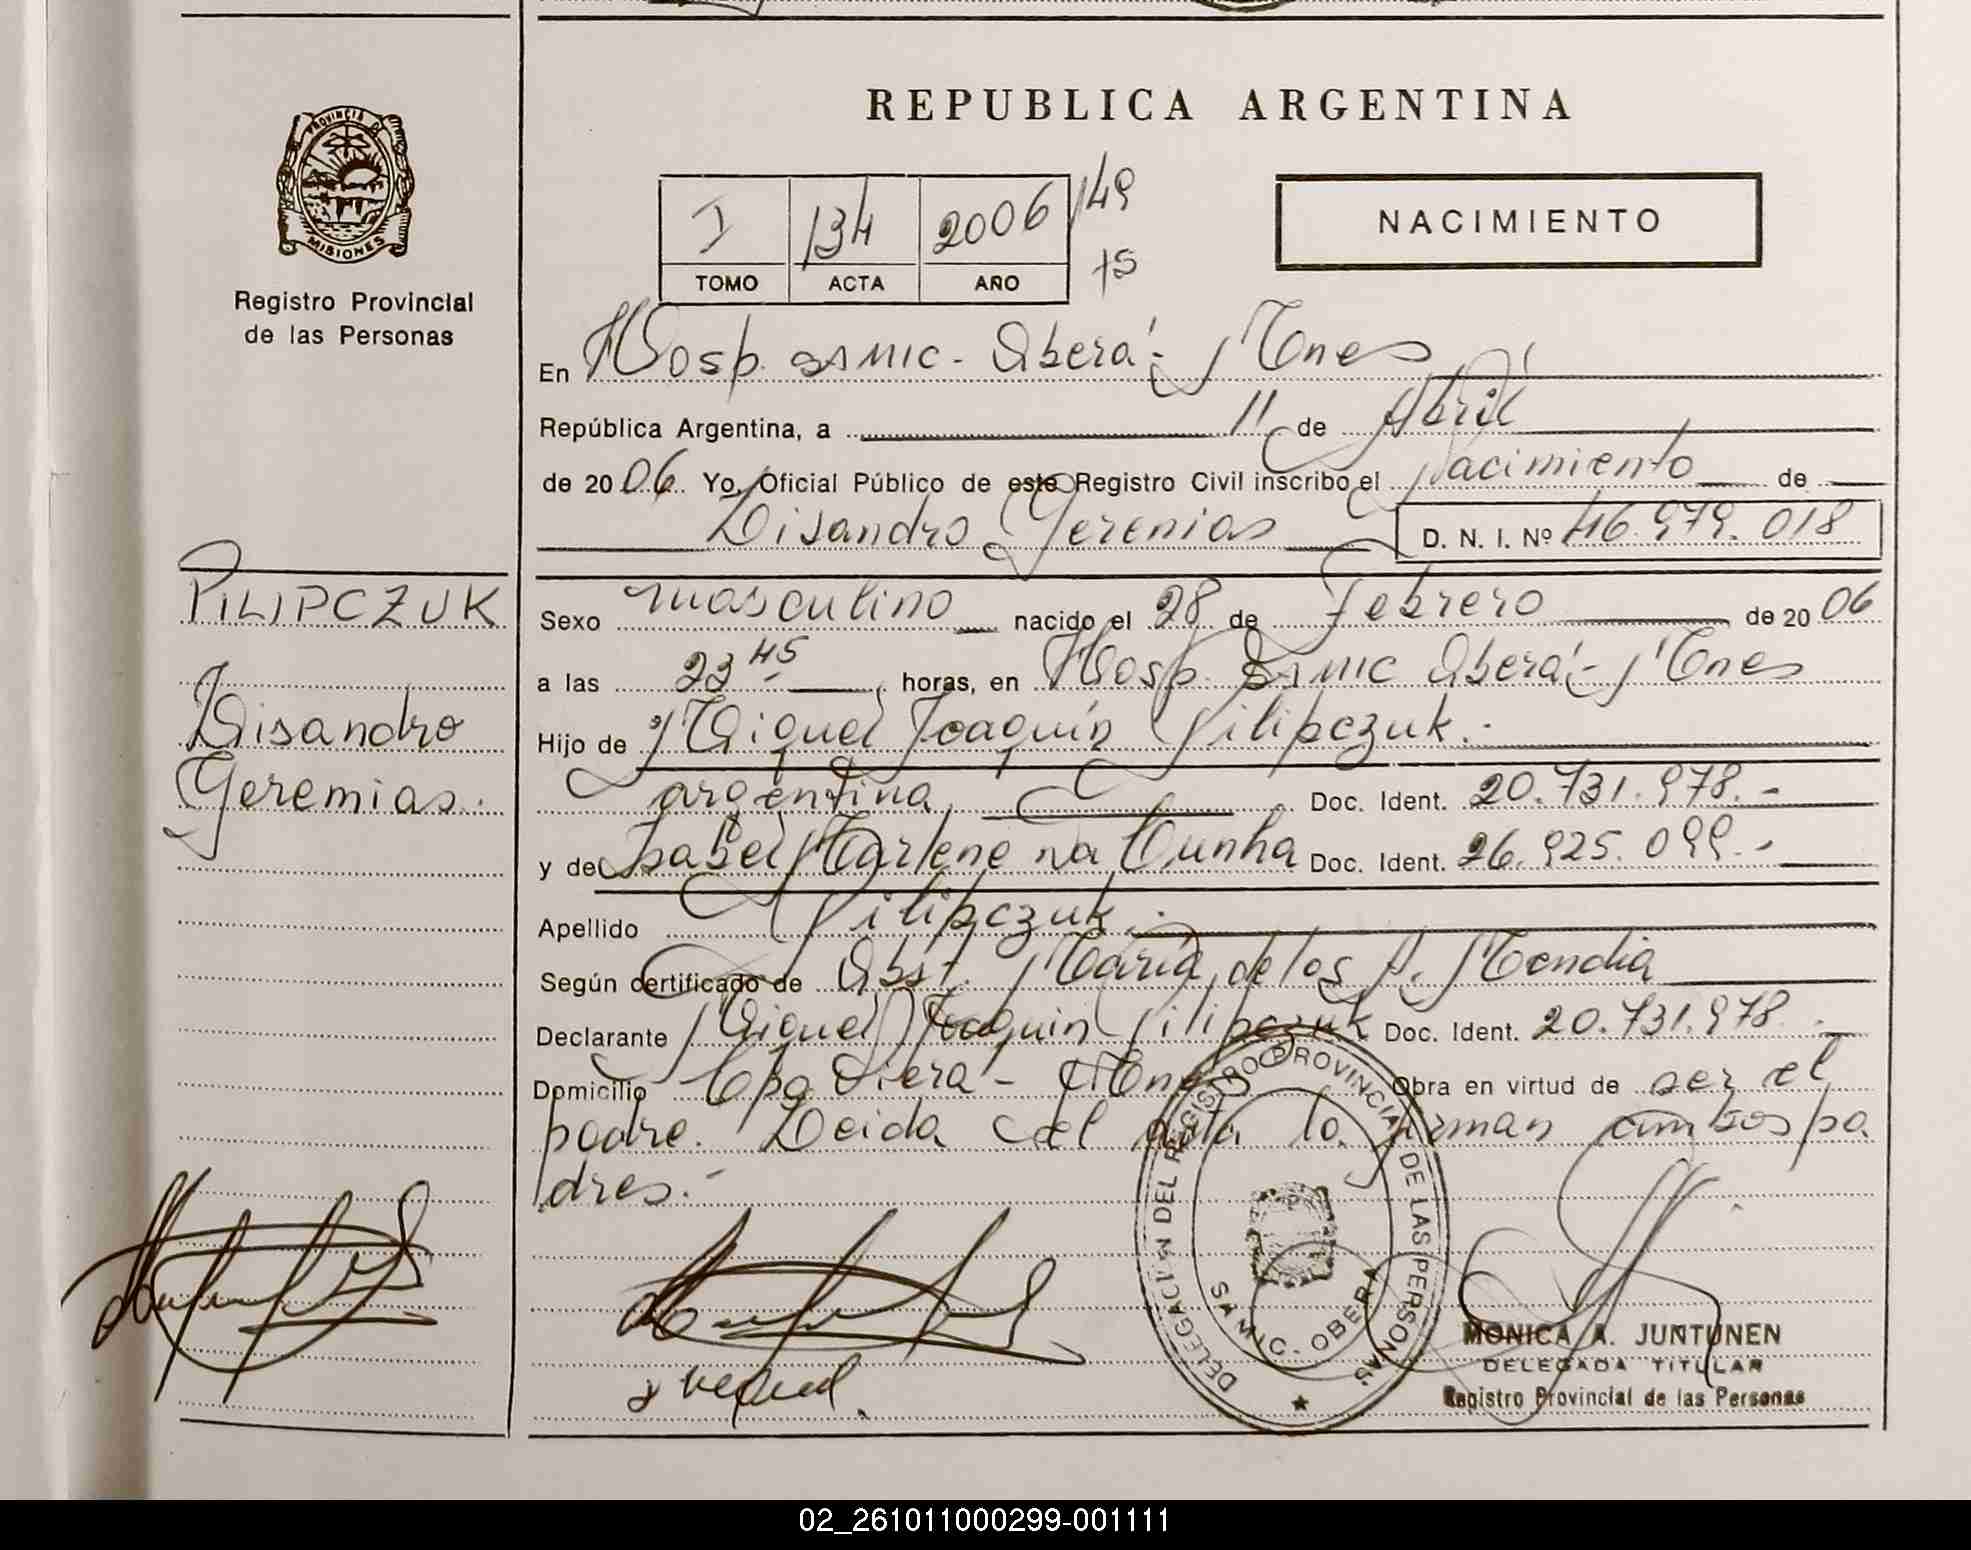 REPUBLICA ARGENTINA
PROVINCIA DE
MISIONES
Registro Provincial
de las Personas
I 134 2006 /49
TOMO ACTA AÑO 15
NACIMIENTO
En Hosp. SAMIC - Oberá - Mnes
República Argentina, a 11 de Abril
de 2006 Yo, Oficial Público de este Registro Civil inscribo el Nacimiento de
Lisandro Geremias D. N. I. Nº 46.979.018
PILIPCZUK
Lisandro
Geremias.
Sexo masculino nacido el 28 de Febrero de 2006
a las 23 45 horas, en Hosp. SAMIC Oberá - Mnes
Hijo de Miguel Joaquín Pilipczuk.-
argentina Doc. Ident. 20.731.978.-
y de Isabel Marlene Da Cunha Doc. Ident. 26.925.099.-
Apellido Pilipczuk.-
Según certificado de Obst. María de los A. Mendia
Declarante Miguel Joaquin Pilipczuk Doc. Ident. 20.731.978.-
Domicilio Cpo Viera - Mnes Obra en virtud de ser el
padre. Leida el acta la firman ambos pa
dres.-
DELEGACION DEL REGISTRO PROVINCIAL DE LAS PERSONAS
SAMIC. OBERA
MONICA A. JUNTUNEN
DELEGADA TITULAR
Registro Provincial de las Personas
02_261011000299-001111